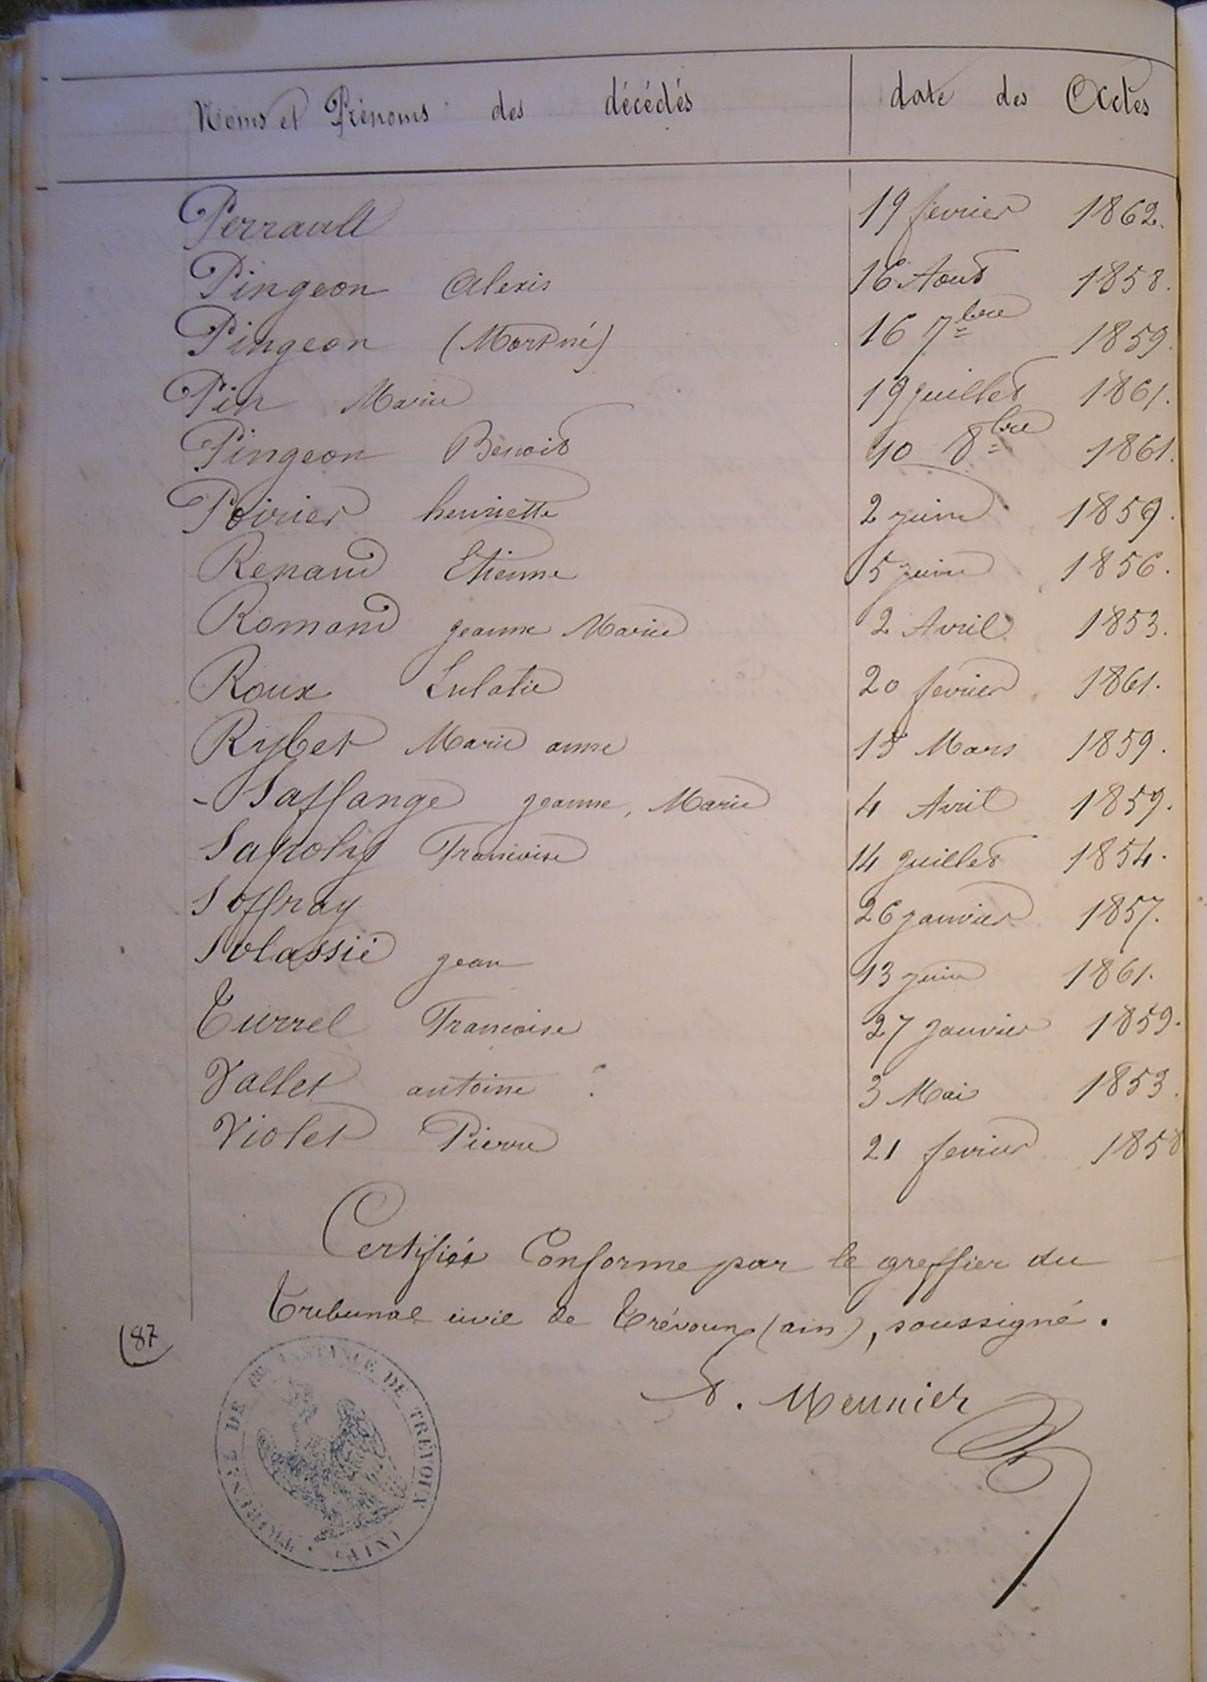 Noms et Prénoms des décédés date des Actes
Perrault 19 fevrier 1862.
Pingeon Alexis 16 Aout 1858.
Pingeon (Mort né) 16 7bre 1859.
Pin Marie 19 juillet 1861.
Pingeon Benoit 10 8bre 1861.
Poirier henriette 2 juin 1859.
Renaud Etienne 5 juin 1856.
Romand jeanne Marie 2 Avril 1853.
Roux Eulalie 20 fevrier 1861.
Rybet Marie anne 15 Mars 1859.
Saffange jeanne, Marie 4 Avril 1859.
Sapoly Francoise 14 juillet 1854.
Soffray 26 janvier 1857.
Solassié jean 13 juin 1861.
Turrel Francoise 27 janvier 1859.
Vallet antoine 3 Mai 1853.
Violet Pierre 21 fevrier 1858
Certifiés Conforme par le greffier du
Tribunal civil de Trévoux (ain), soussigné.
(87
Meunier
TRIBUNAL DE 1RE INSTANCE DE TRÉVOUX (AIN)